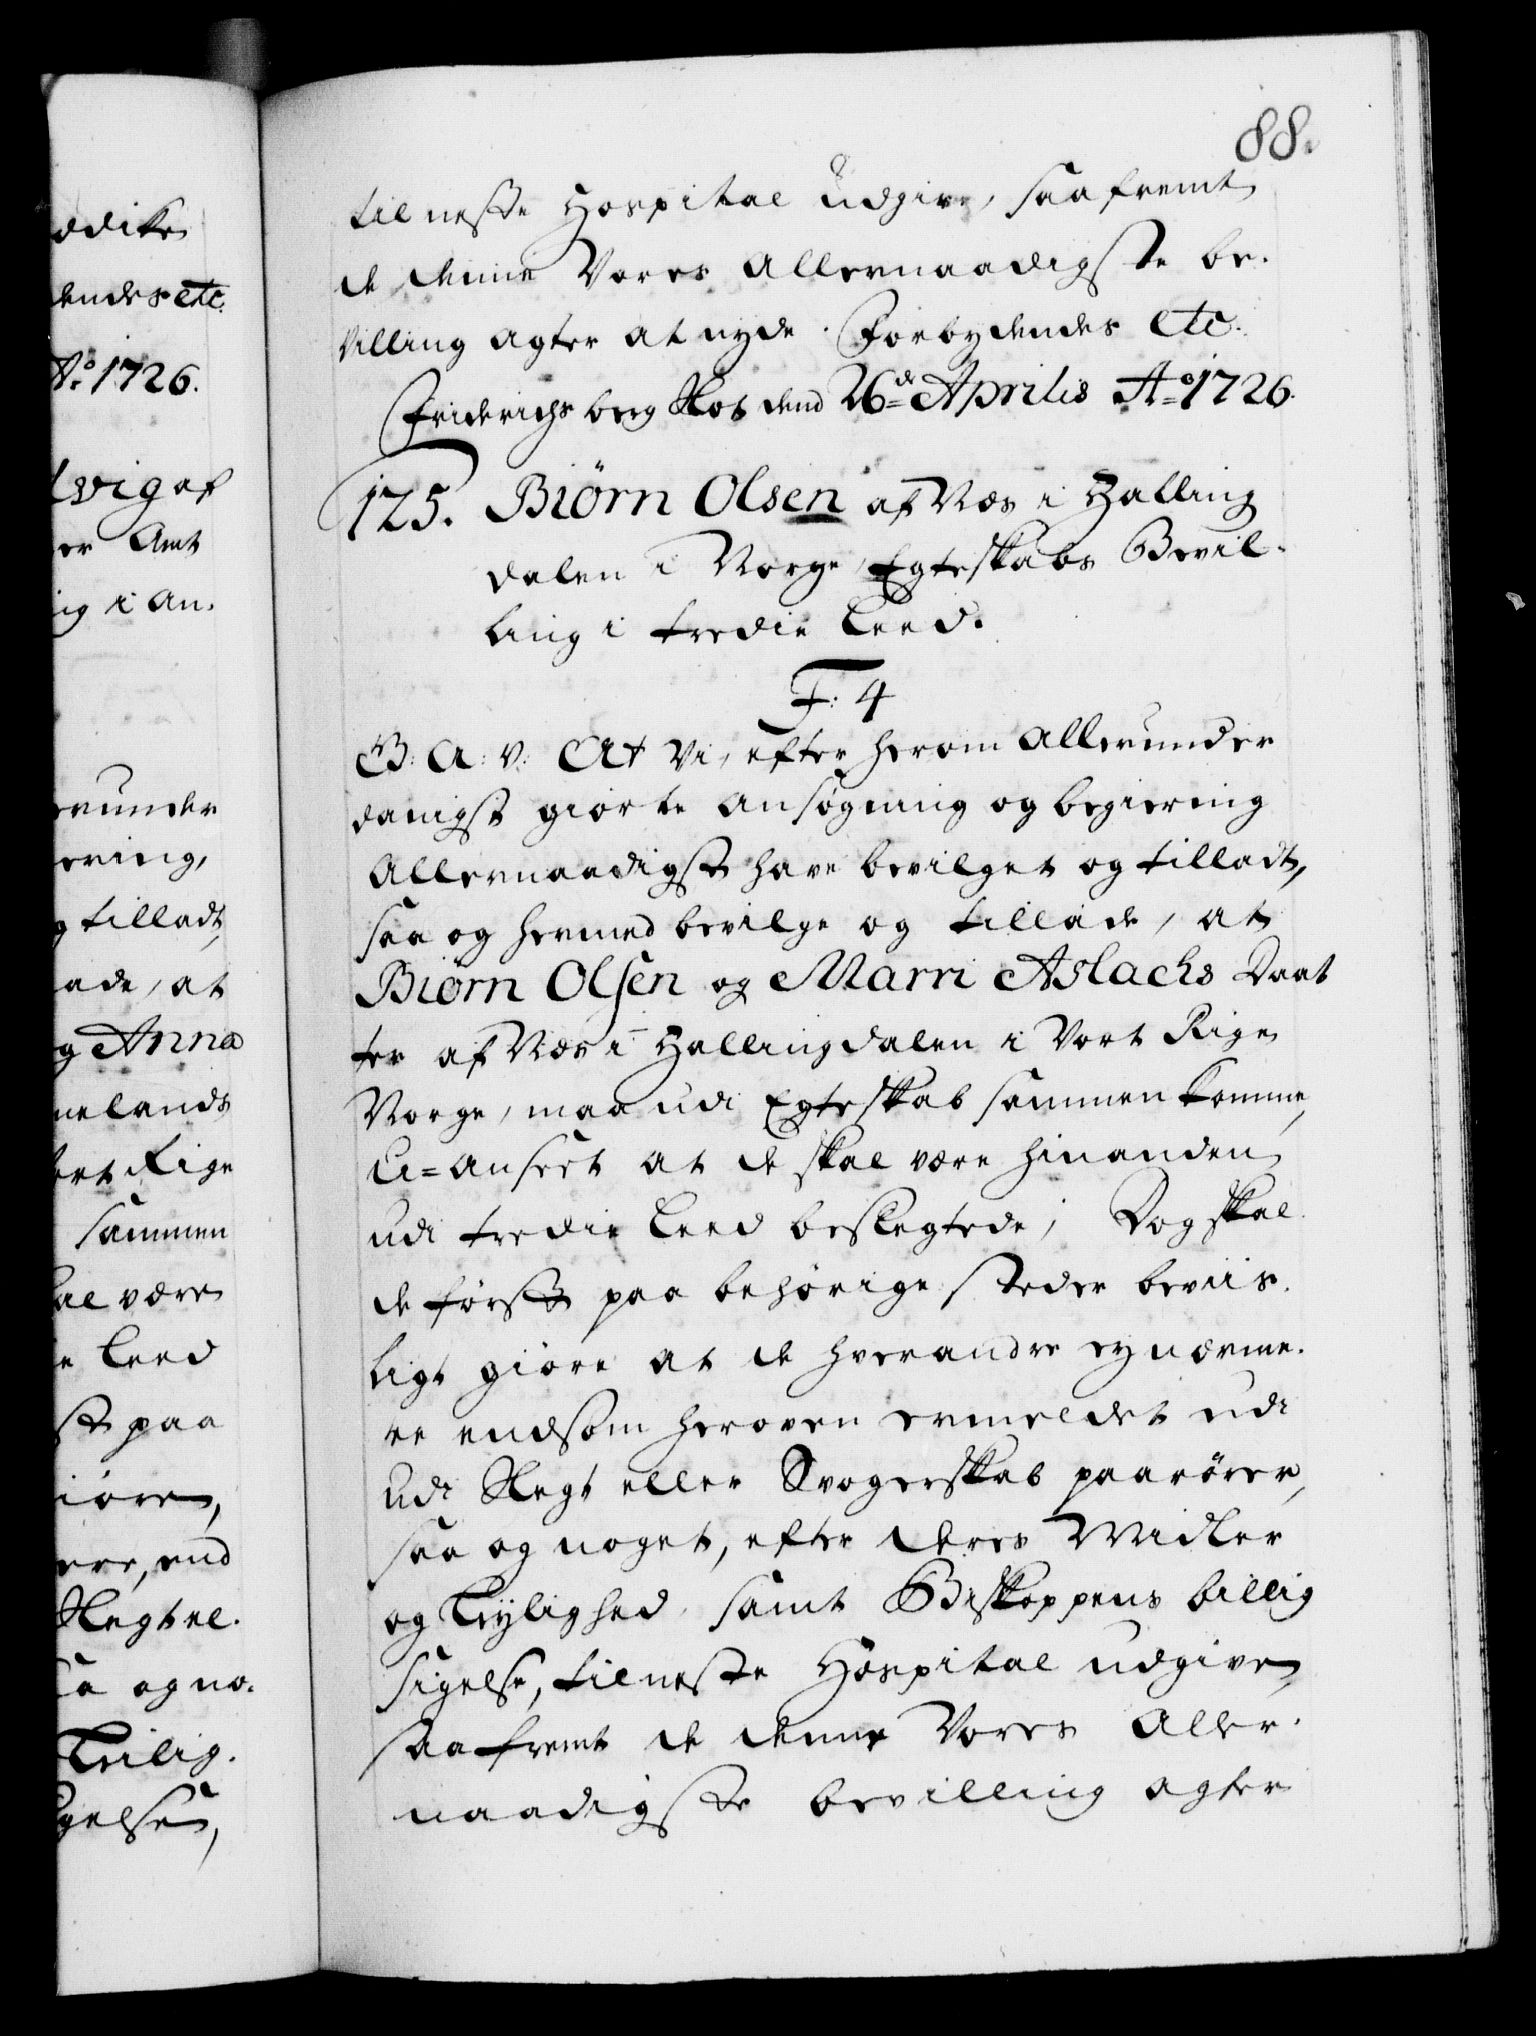 88.
til neste Hospital udgive, saafremt
de denne Vores Allernaadigste be-
villing agter at nyde. Forbydendes etc.
Friderichsberg Slot dend 26de Aprilis Ao 1726.
125. Biørn Olsen af Næs i Halling
dalen i Norge, Egteskabs Bevil-
ling i tredie Leed.
F: 4
G: A: V: At Vi, efter herom Allerunder
danigst giorte Ansøgning og begiering
Allernaadigst have bevilget og tilladt,
saa og hermed bevilge og tillade, at
Biørn Olsen og Marri Aslachs Daat
ter af Næs i Hallingdalen i Vort Rige
Norge, maa udi Egteskab sammen komme,
U=anseet at de skal være hinanden
udi tredie Leed beslegtede; Dog skal
de først paa behørige steder beviis-
ligt giøre at de hverandre ey nærme-
re endsom heroven ermeldet udi
udi Slegt eller Svogerskab paarører,
saa og noget, efter deres Midler
og Leylighed, samt Biskoppens billig
sigelse, til neste Hospital udgive,
saafremt de denne Vores Aller-
naadigste bevilling agter
endes etc.
Ao 1726.
vig af
er Amt
ng i An-
erunder
ering,
g tilladt,
ade, at
g Anna
nelands
ort Rige
sammen
al være
e Leed
st paa
iøre,
ere, end
Slegt el-
a og no-
Leilig-
gelse,